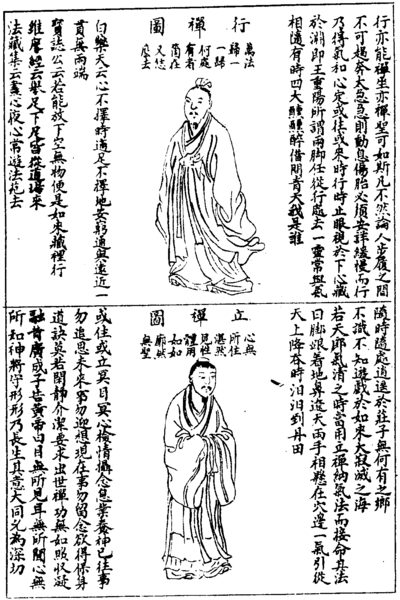 行亦能禪坐亦禪聖可如斯凡不然論人步履之間
不可趨奔太急急則動息傷胎必須安詳緩慢而行
乃得氣和心定或往或來時行時止眼視於下心藏
於淵即王重陽所謂兩脚任從行處去一靈常與氣
相隨有時四大醺醺醉借問青天我是誰
行禪圖
萬法
歸一
一歸
何處
有者
箇在
又恁
麼去
白樂天云心不擇時適足不擇地安窮通與遠近一
貫無兩端
寶誌公云若能放下空無物便是如來藏裡行
維摩經云舉足下足皆從道場來
法藏集云晝心夜心常遊法苑去
隨時隨處逍遙於莊子無何有之鄉
不識不知遊戲於如來大寂滅之海
若天郎氣清之時當用立禪納氣法而接命其法
曰脚跟着地鼻遼天兩手相懸在穴邊一氣引從
天上降吞時汩汩到丹田
立禪圖
心無
所住
湛然
見性
體用
如如
廓然
無聖
或住或立冥目冥心檢情攝念息業養神已往事
勿追思未來事勿迎想現在事勿留念欲得保身
道訣莫若閒靜介潔要求出世禪功無如照收凝
融昔廣成子告黃帝曰目無所見耳無所聞心無
所知神將守形形乃長生其意大同尤為深切